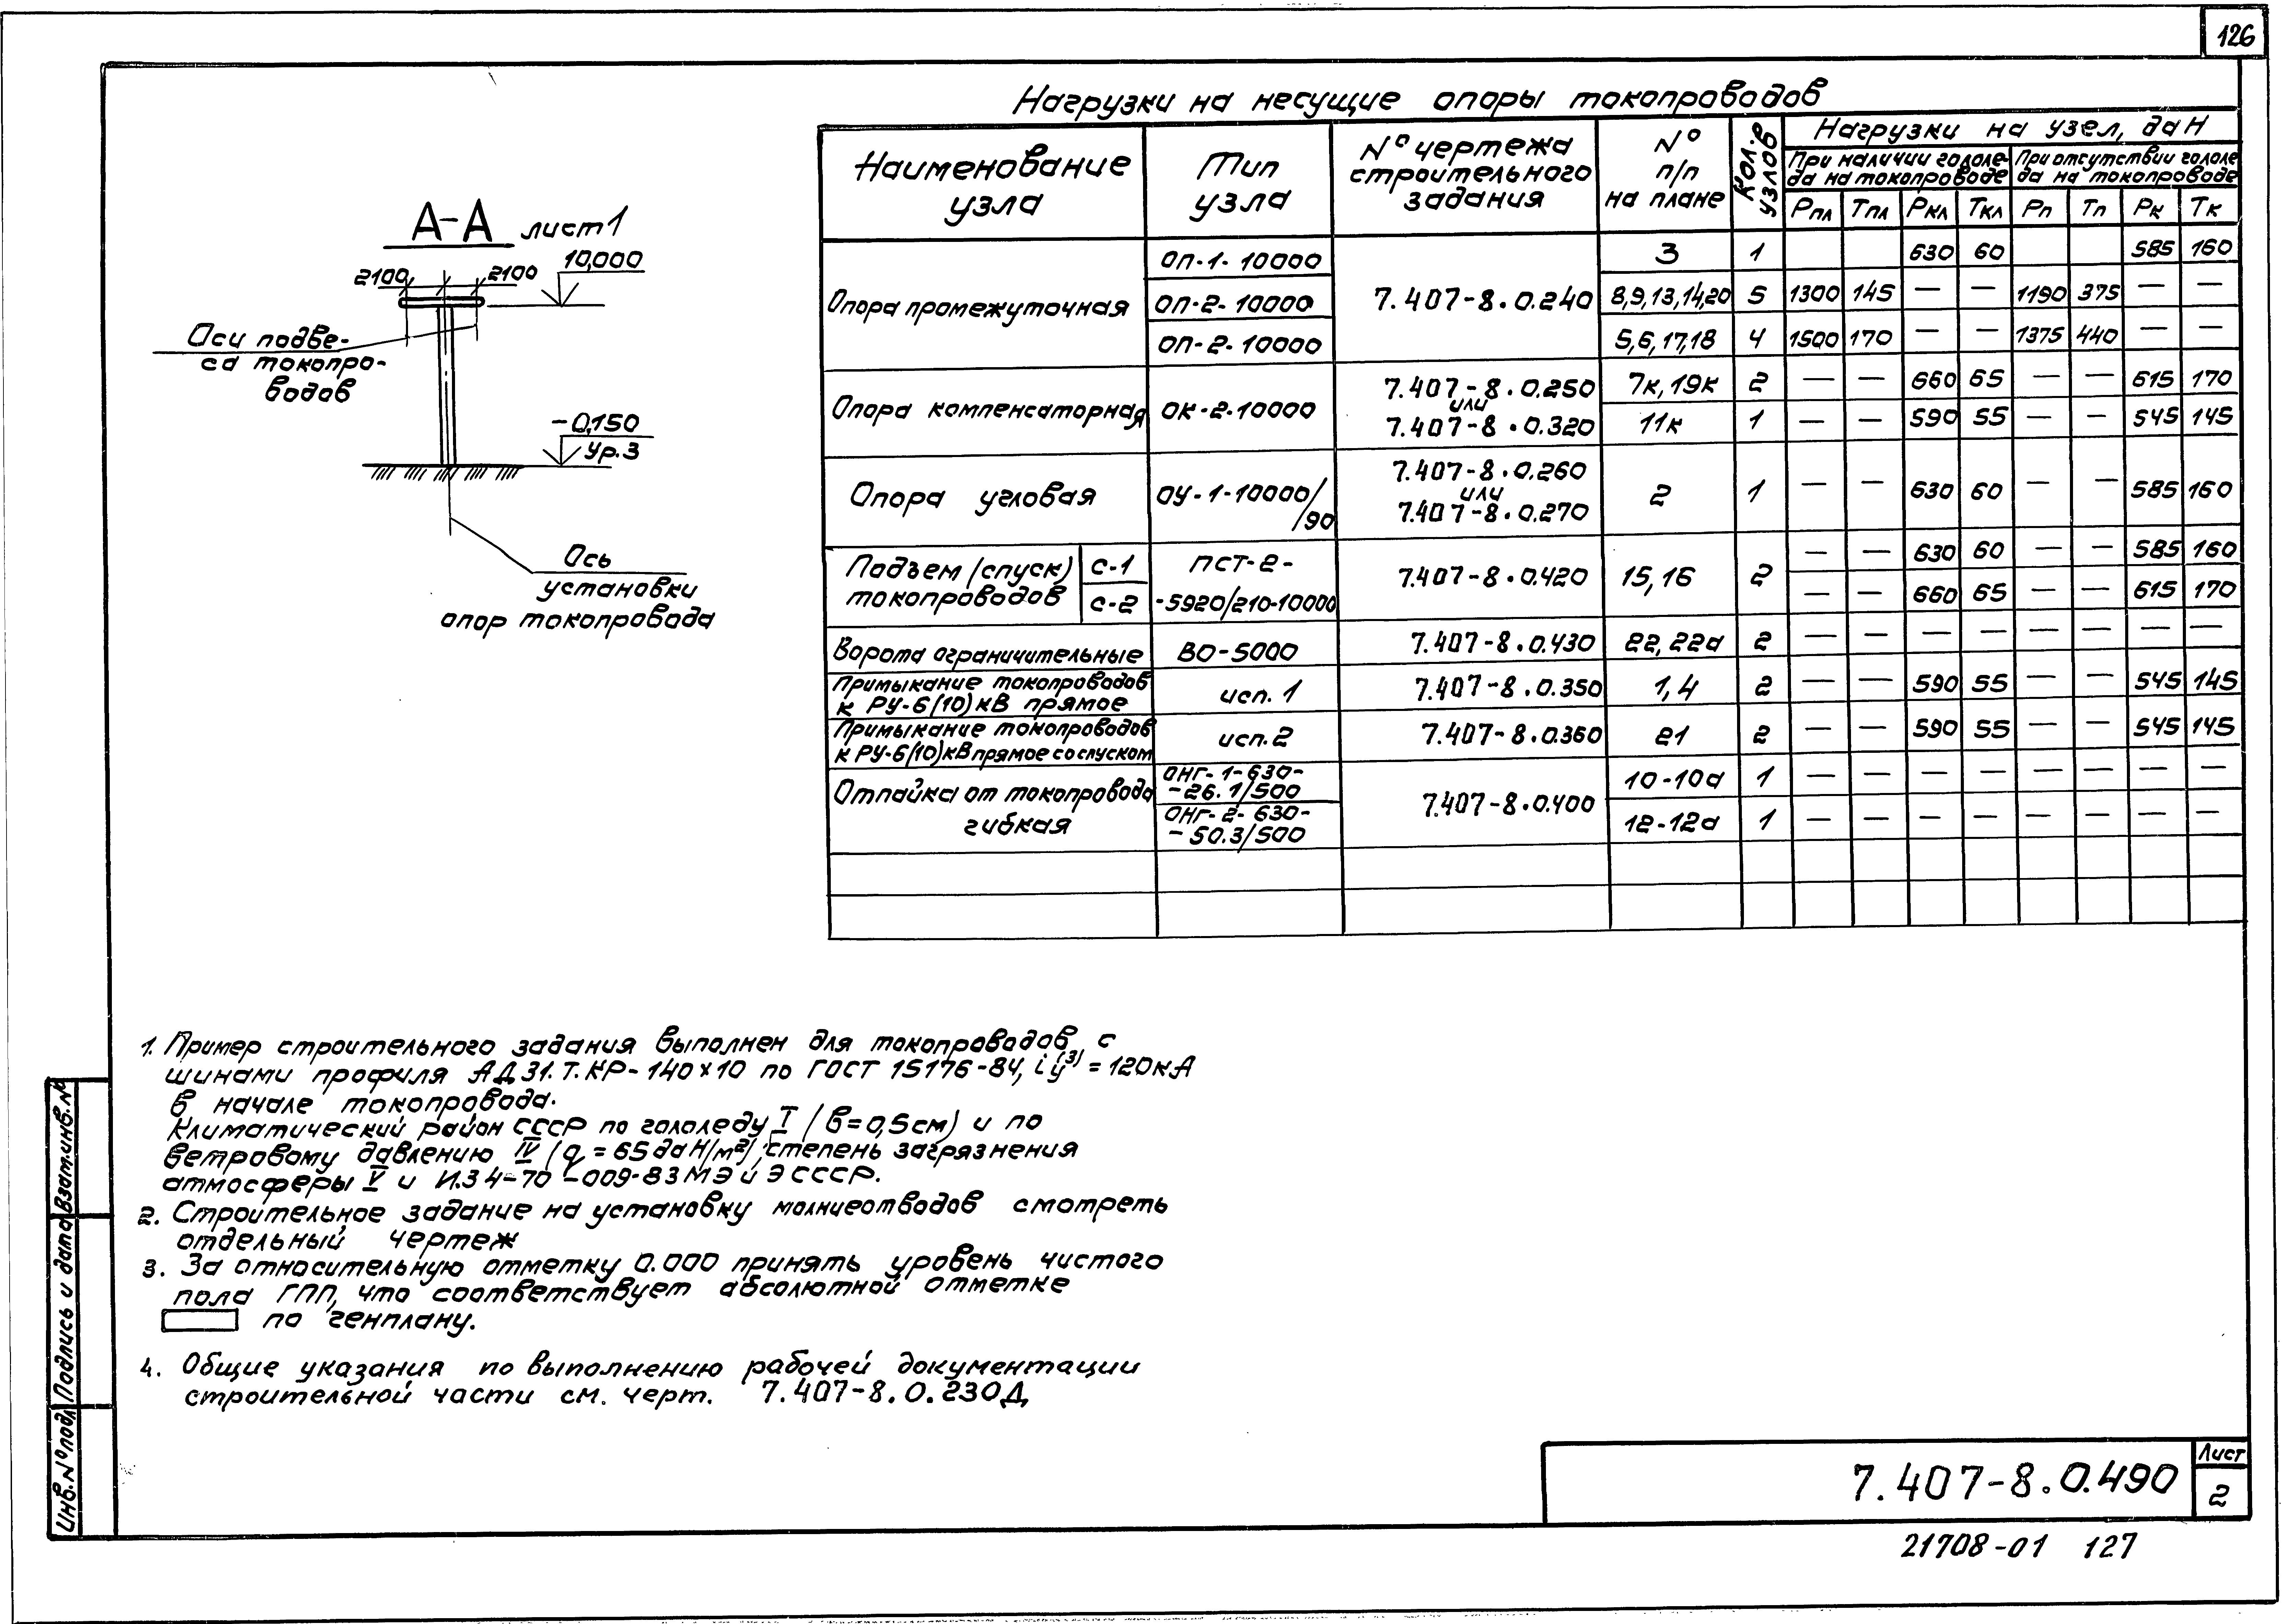 126
Нагрузки на несущие опоры токопроводов
А-А лист 1
2100 2100 10,000
Оси подве-
са токопро-
водов
-0,150
Ур.З
Ось
установки
опор токопровода
Наименование узла | Тип узла | № чертежа строительного задания | № п/п на плане | Кол.в узлов | Нагрузки на узел, даН
При наличии гололе-да на токопроводе | При отсутствии гололе-да на токопроводе
Рпл | Тпл | Ркл | Ткл | Рп | Тп | Рк | Тк
Опора промежуточная | ОП-1-10000 | 7.407-8.0.240 | 3 | 1 | | | 630 | 60 | | | 585 | 160
ОП-2-10000 | 8,9,13,14,20 | 5 | 1300 | 145 | — | — | 1190 | 375 | — | —
ОП-2-10000 | 5,6,17,18 | 4 | 1500 | 170 | — | — | 1375 | 440 | — | —
Опора компенсаторная | ОК-2-10000 | 7.407-8.0.250 или 7.407-8.0.320 | 7к, 19к | 2 | — | — | 660 | 65 | — | — | 615 | 170
11к | 1 | — | — | 590 | 55 | — | — | 545 | 145
Опора угловая | ОУ-1-10000/90 | 7.407-8.0.260 или 7.407-8.0.270 | 2 | 1 | — | — | 630 | 60 | — | — | 585 | 160
Подъем (спуск) токопроводов | С-1 | ПСТ-2- | 7.407-8.0.420 | 15,16 | 2 | — | — | 630 | 60 | — | — | 585 | 160
С-2 | -5920/210-10000 | — | — | 660 | 65 | — | — | 615 | 170
Ворота ограничительные | ВО-5000 | 7.407-8.0.430 | 22, 22а | 2 | — | — | — | — | — | — | — | —
Примыкание токопроводов к РУ-6(10)кВ прямое | исп. 1 | 7.407-8.0.350 | 1,4 | 2 | — | — | 590 | 55 | — | — | 545 | 145
Примыкание токопроводов к РУ-6(10)кВ прямое со спуском | исп.2 | 7.407-8.0.360 | 21 | 2 | — | — | 590 | 55 | — | — | 545 | 145
Отпайка от токопровода гибкая | ОНГ-1-630--26.1/500 | 7.407-8.0.400 | 10-10а | 1 | — | — | — | — | — | — | — | —
ОНГ-2-630--50.3/500 | 12-12а | 1 | — | — | — | — | — | — | — | —
1. Пример строительного задания выполнен для токопроводов с
шинами профиля АД31.Т.КР-140×10 по ГОСТ 15176-84, iу(3) = 120кА
в начале токопровода.
Климатический район СССР по гололеду I (в=0,5см) и по
ветровому давлению IV (q = 65даН/м²), степень загрязнения
атмосферы V и И.34-70-009-83 МЭиЭ СССР.
2. Строительное задание на установку молниеотводов смотреть
отдельный чертеж
3. За относительную отметку 0.000 принять уровень чистого
пола ГПП, что соответствует абсолютной отметке
по генплану.
4. Общие указания по выполнению рабочей документации
строительной части см. черт. 7.407-8.0.230Д
Инв.№подл Подпись и дата Взам.инв.№
7.407-8.0.490
Лист
2
21708-01 127